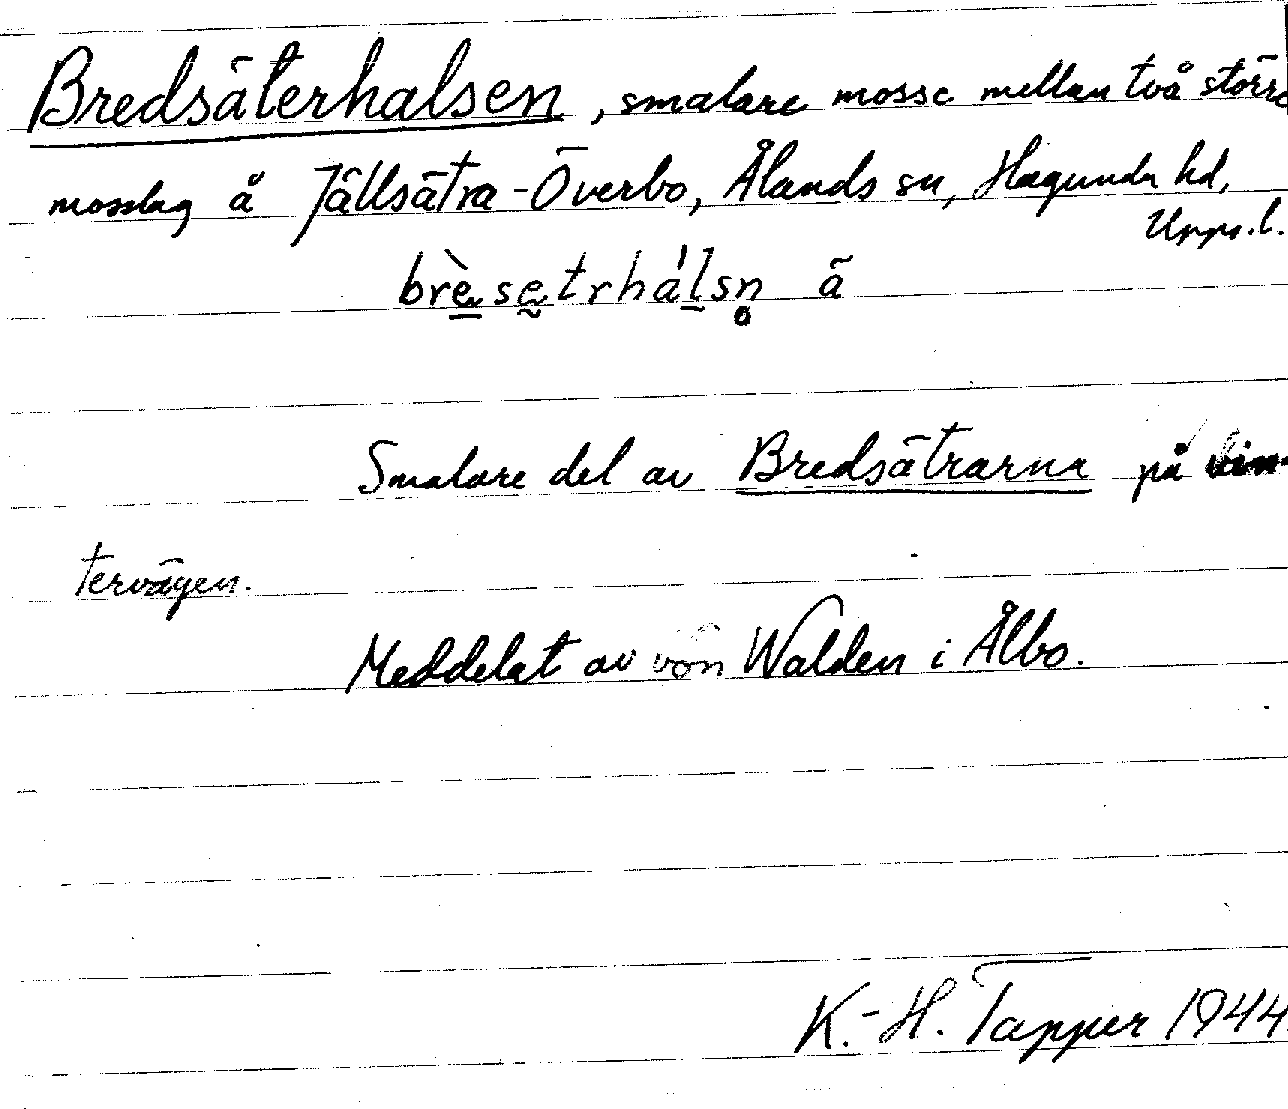 Bredsäterhalsen, smalare mosse mellan två större
mosslag å Jällsätra-Överbo, Ålands sn, Hagunda hd,
Upps. l.
brè̱sḛtrháḻsn̥ ä
Smalare del av Bredsätrarna på vin-
tervägen.
Meddelat av von Walden i Ålbo.
K.-H. Tapper 1944